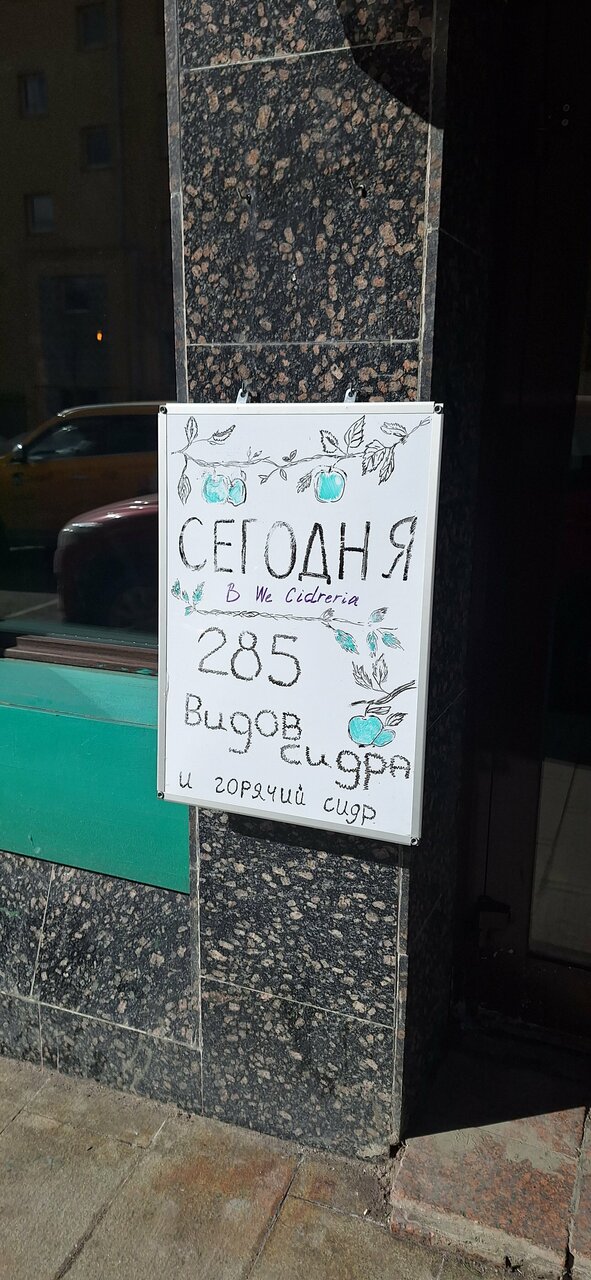 СЕГОДНЯ
В We Cidreria
285
Видов
сидра
и горячий сидр